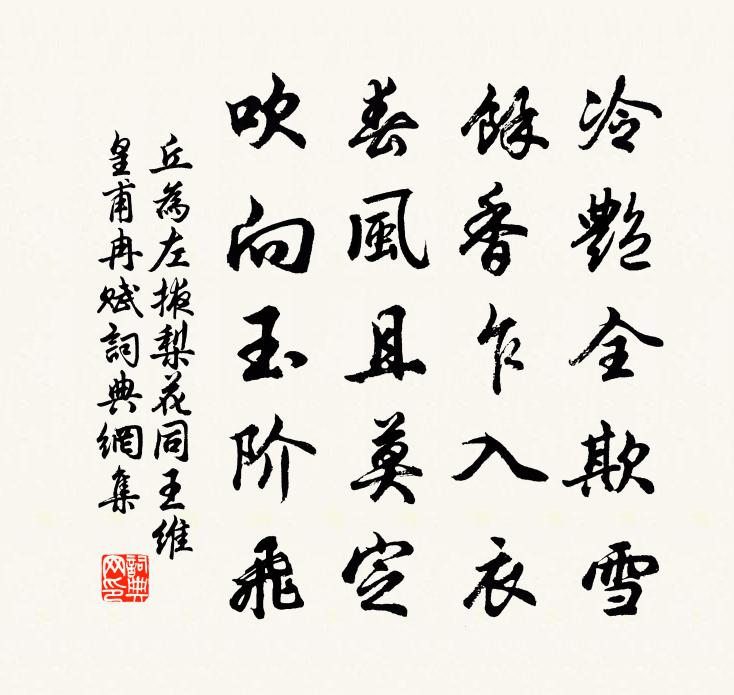 冷艷全欺雪
餘香乍入衣
春風且莫定
吹向玉阶飛
丘為左掖梨花同王維
皇甫冉賦詞典網集
詞典
网印